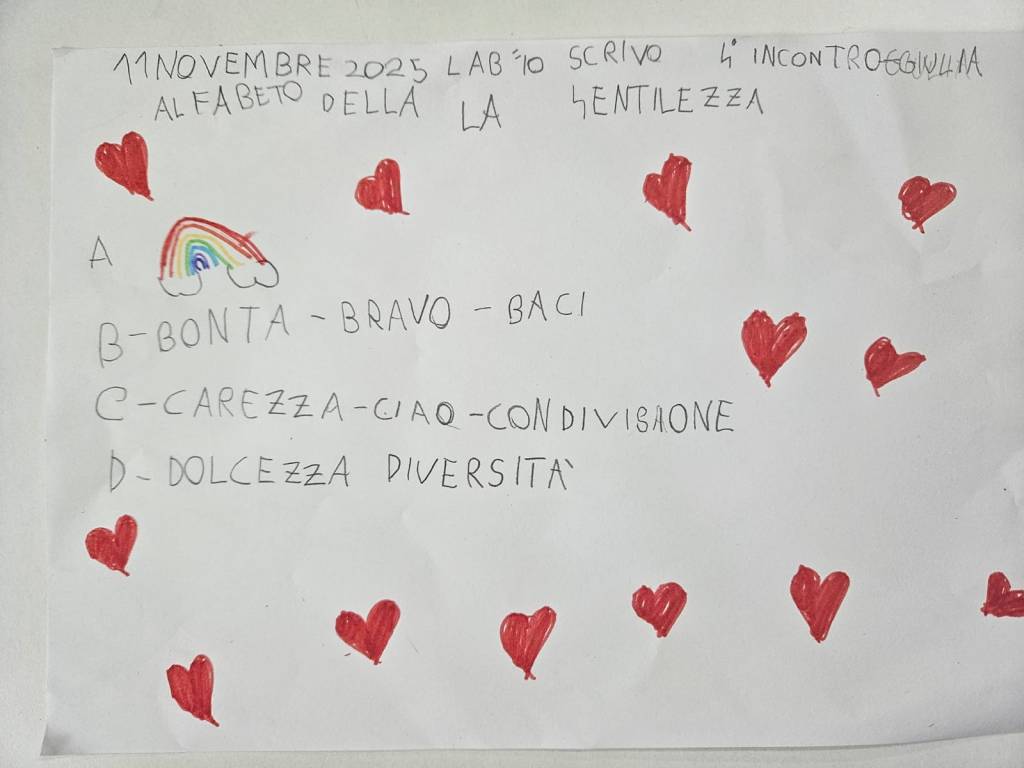 11 NOVEMBRE 2025 LAB "IO SCRIVO 4° INCONTRO
ALFABETO DELLA LA GENTILEZZA
A
B-BONTA - BRAVO - BACI
C-CAREZZA-CIAO-CONDIVISIAONE
D- DOLCEZZA DIVERSITÀ